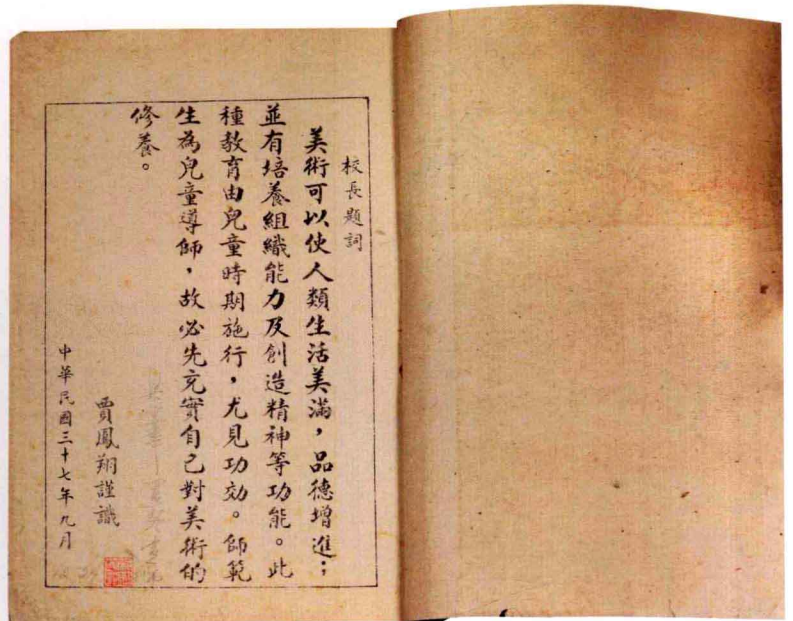 校長題詞
美術可以使人類生活美滿，品德增進；
並有培養組織能力及創造精神等功能。此
種教育由兒童時期施行，尤見功効。師範
生為兒童導師，故必先充實自己對美術的
修養。
賈鳳翔謹識
中華民國三十七年九月